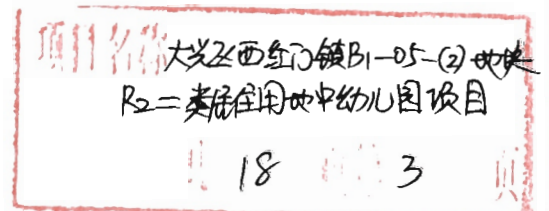 项目名称 大兴区西红门镇B1-05-(2)地块
R2二类居住用地中幼儿园项目
18 3 页